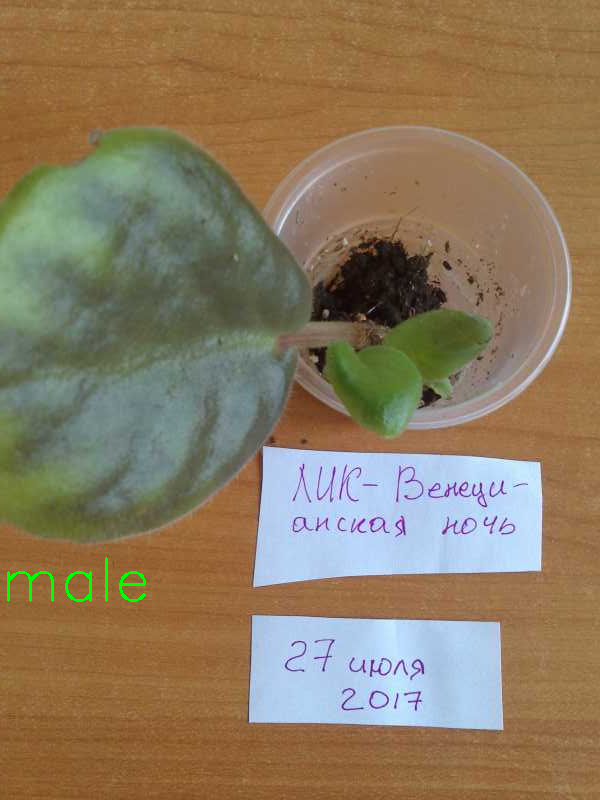 ЛИК- Венеци-
анская ночь
male
27 июля
2017